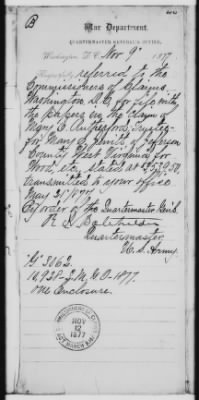 B
War Department,
QUARTERMASTER GENERAL'S OFFICE,
Washington, D.C. Nov 9th 1877
Respectfully referred to the
Commissioners of Claims,
Washington D.C. for file with
the papers in the claim of
Mary C. Rutherford, Trustee
for Mary of Jefferson
County West Virginia for
Wood, etc, stated at
transmitted to your office
May 3, 1877.
By order of the Quartermaster Gen'l.
Quartermaster
U.S. Army.
"G" 3862.
Q.M.G.O-1877.
One Enclosure.
NOV
12
1877